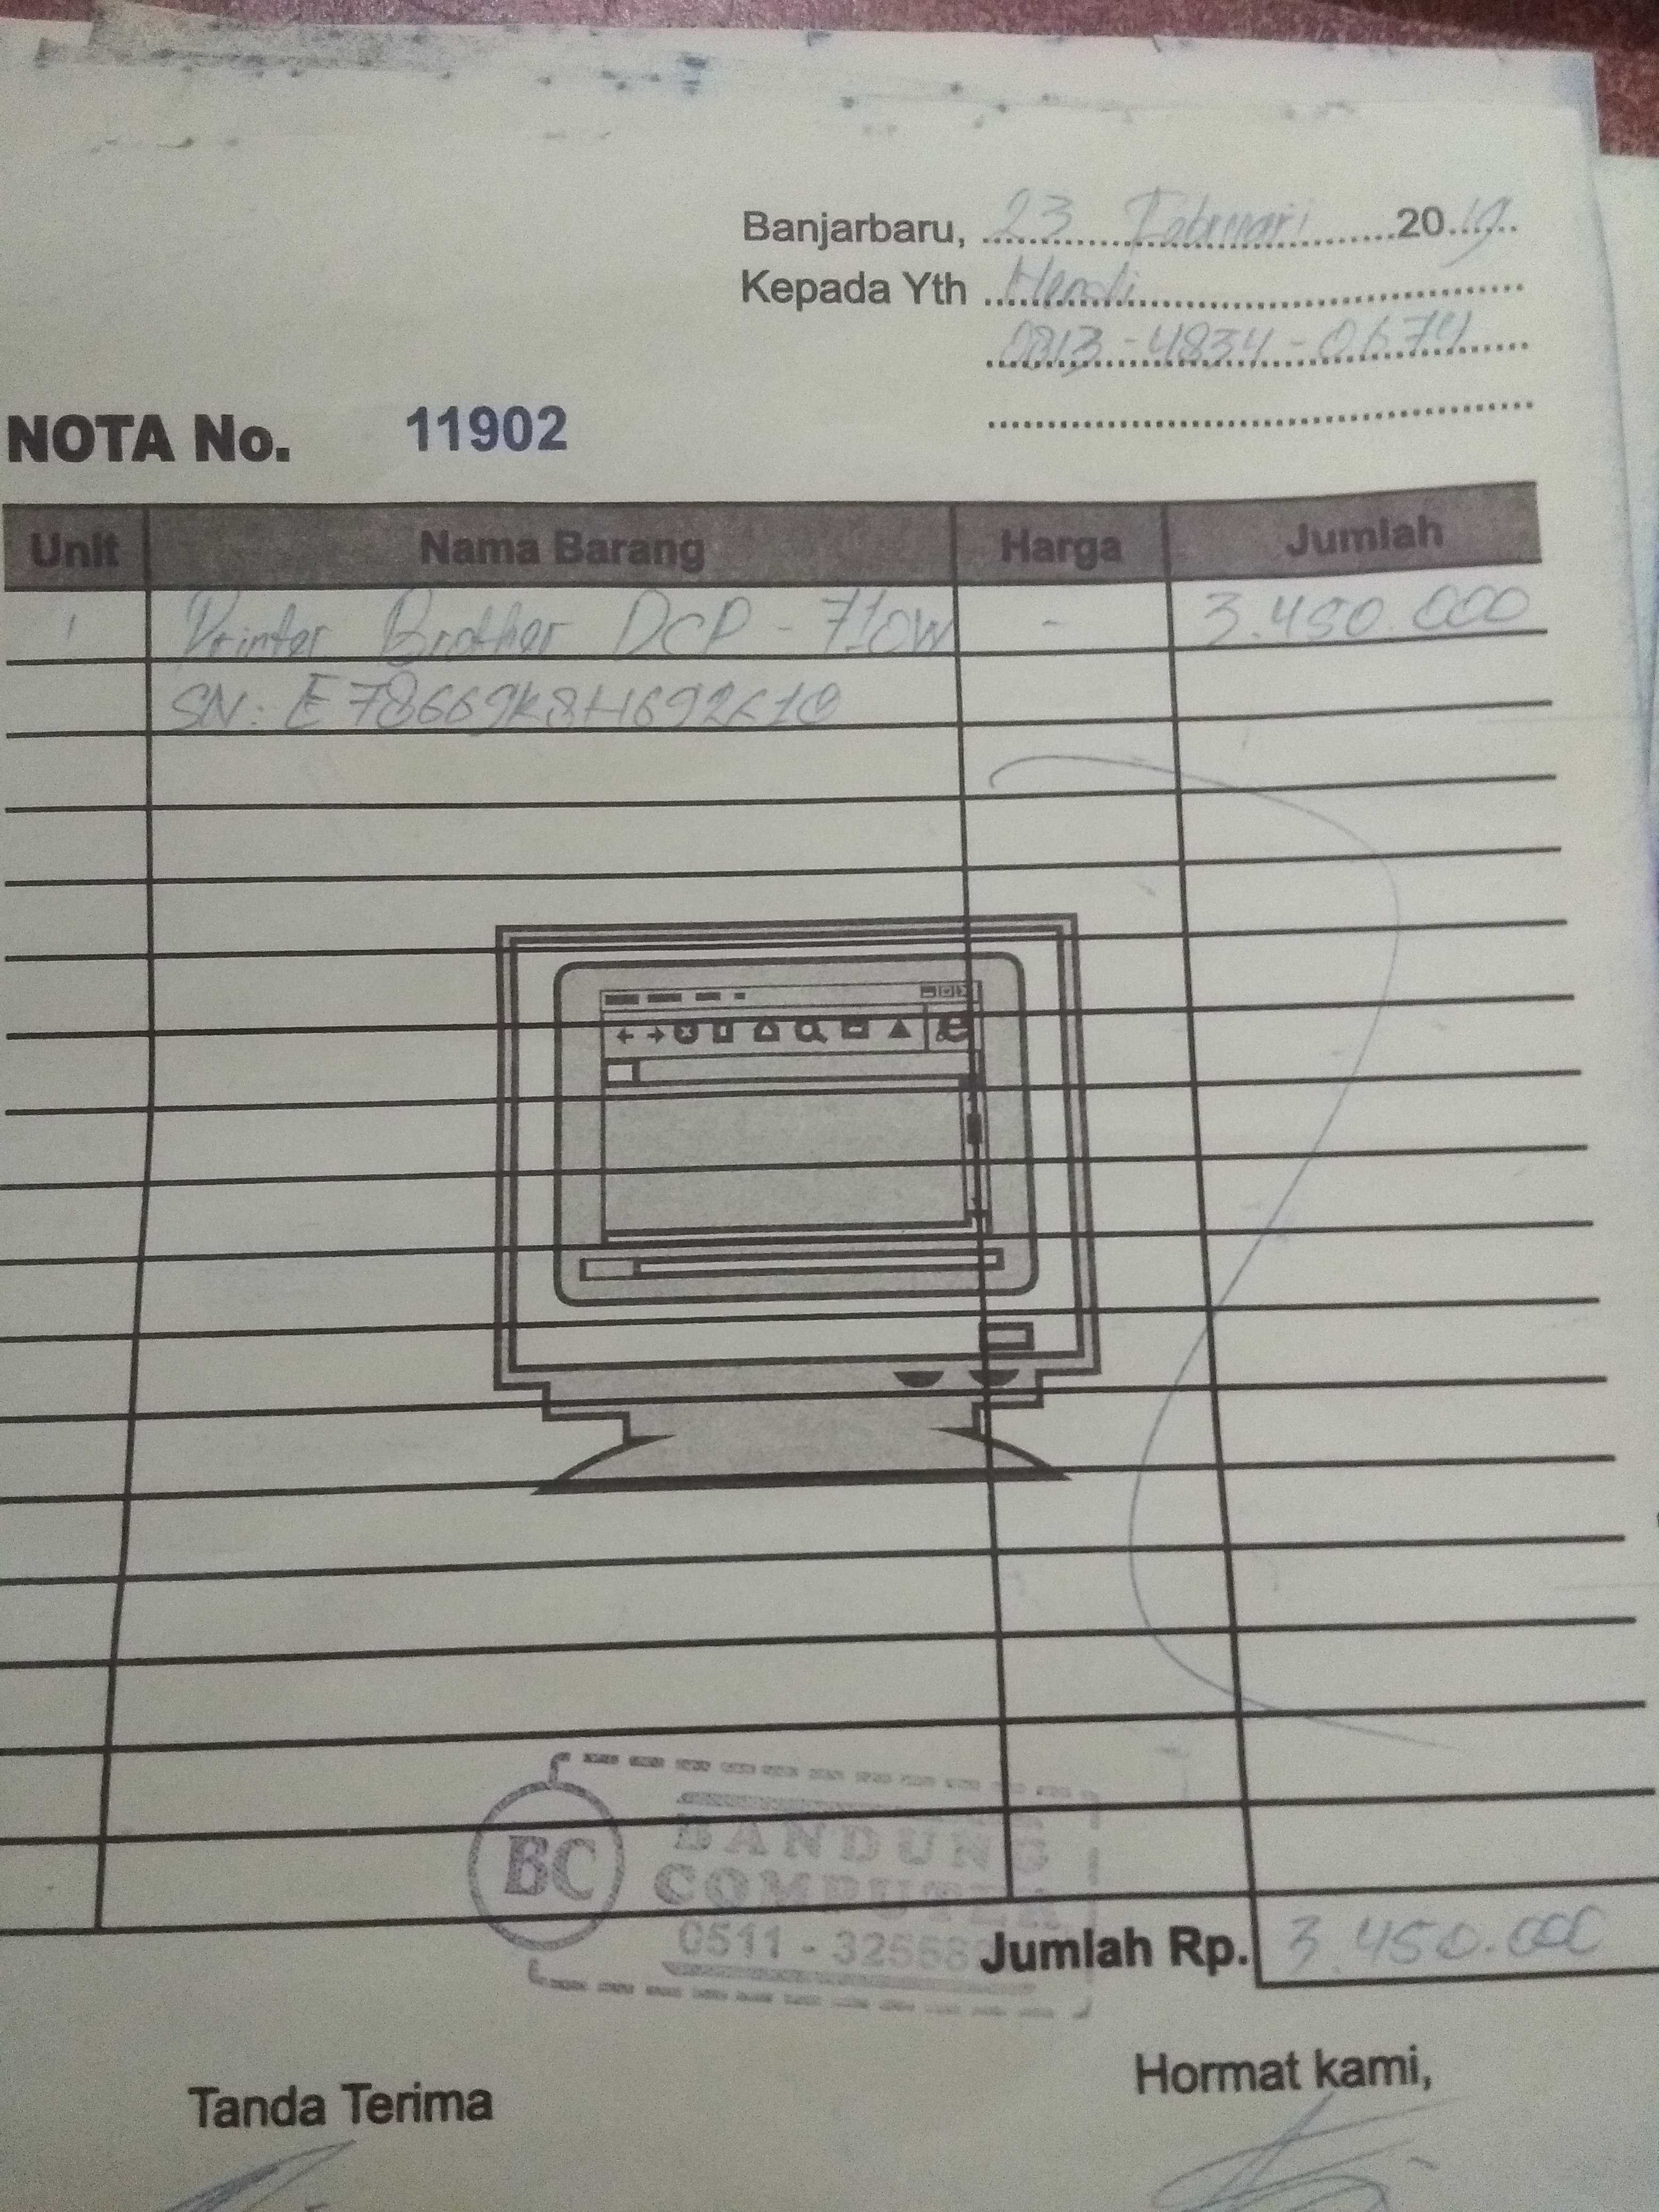 Banjarbaru, 23 Februari 2019
Kepada Yth Hendi
0813-4834-0674
NOTA No. 11902
Unit Nama Barang Harga Jumlah
1 Printer Brother DCP - 710W - 3.450.000
SN:
BC BANDUNG
COMPUTER
0511 - 32558
Jumlah Rp. 3.450.000
Tanda Terima Hormat kami,